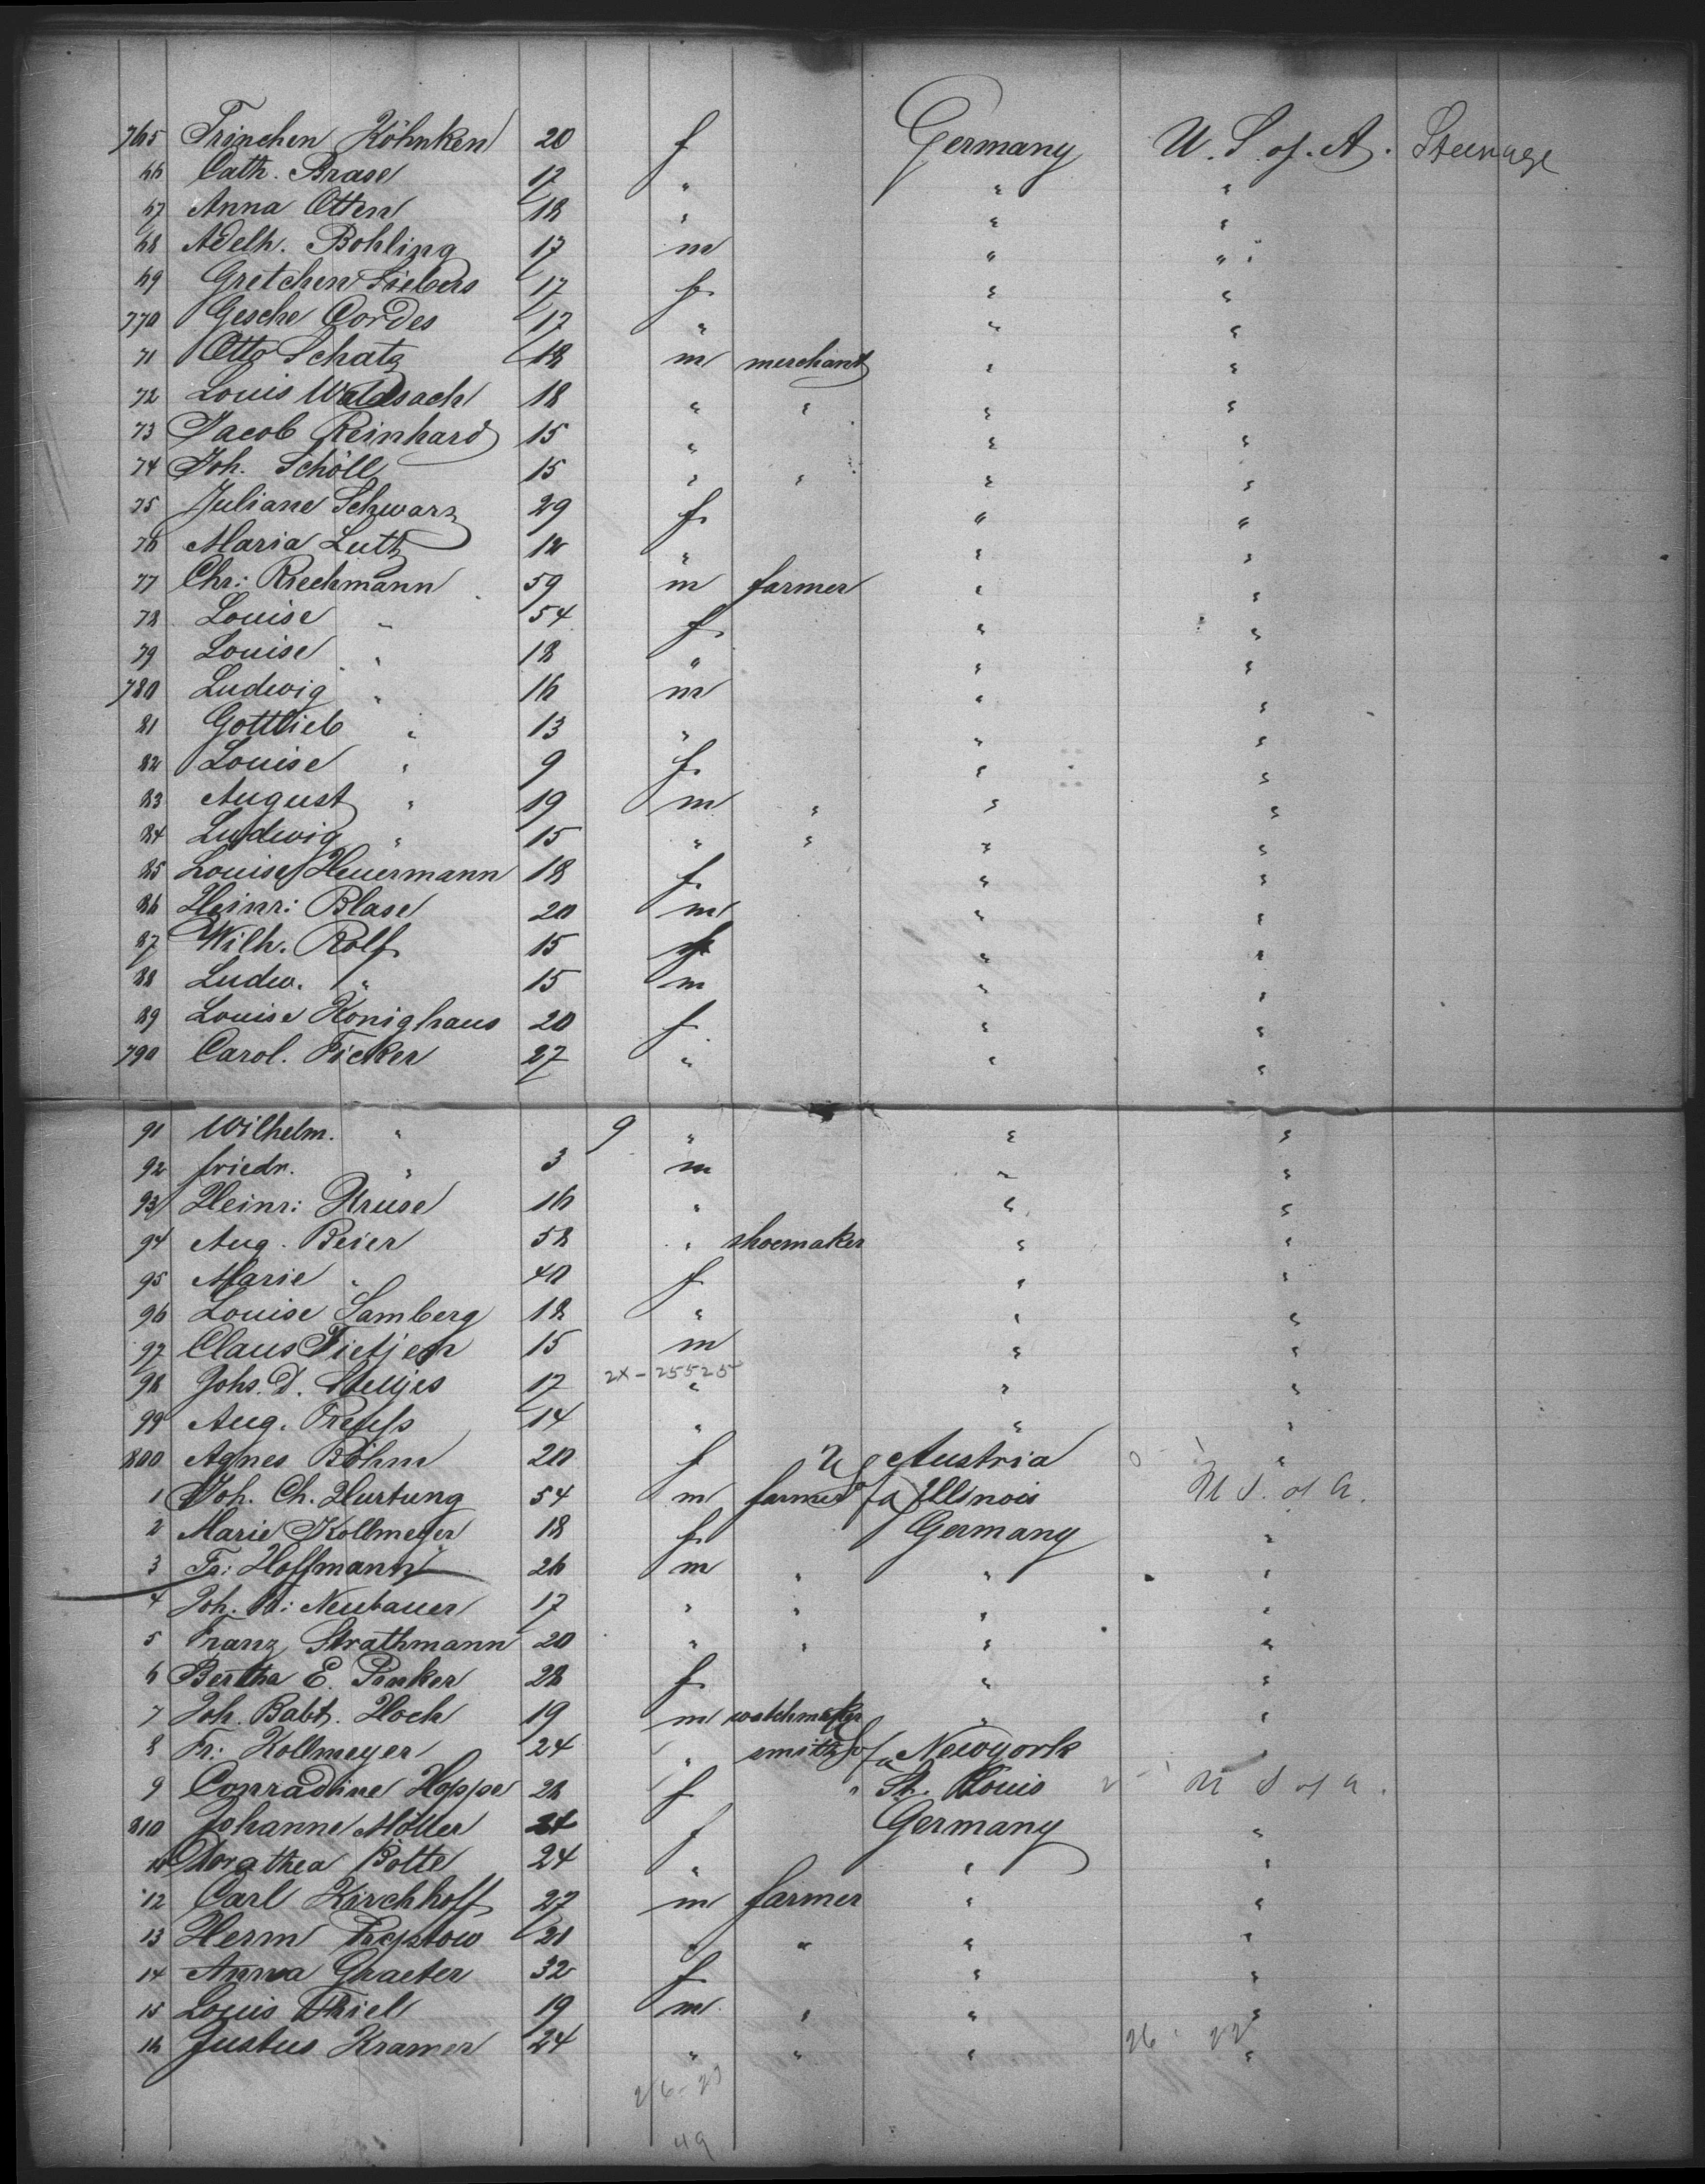 765 Trinchen Köhnken 20 f Germany U. S. of. A. Steerage
66 Cath. Brase 17 " " "
67 Anna Otten 18 " " "
68 Adelh. Bohling 17 m " "
69 Gretchen Siebers 17 f " "
770 Gesche Cordes 17 " " "
71 Otto Schatz 18 m merchant " "
72 Louis Waldsach 18 " " " "
73 Jacob Reinhard 15 " " "
74 Joh. Schöll 15 " " " "
75 Juliane Schwarz 29 f " "
76 Maria Lutz 12 " " "
77 Chr: Riechmann 59 m farmer " "
78 Louise " 54 f " "
79 Louise " 18 " " "
780 Ludwig " 16 m " "
81 Gottlieb " 13 " " "
82 Louise " 9 f " "
83 August " 19 m " " "
84 Ludwig " 15 " " " "
85 Louise Heuermann 18 f " "
86 Heinr: Blase 20 m " "
87 Wilh. Rolf 15 " "
88 Ludw. " 15 m " "
89 Louise Konighaus 20 f " "
790 Carol. Ficker 27 " " "
91 Wilhelm. " 9 " " "
92 friedr. " 3 m " "
93 Heinr: Kruse 16 " " "
94 Aug. Beier 58 " shoemaker " "
95 Marie " 40 f " "
96 Louise Samberg 18 " " "
97 Claus Tietjen 15 m " "
98 Johs. D. Stelljes 17 2x-25525 " " "
99 Aug. Preufs 14 " " "
800 Agnes Böhm 20 f Austria "
1 Joh. Ch. Hartung 54 m farmer Illinois U S. of A.
2 Marie Kollmeyer 18 f Germany "
3 Fr: Hoffmann 26 m " " "
4 Joh. Neubauer 17 " " " "
5 Franz Strathmann 20 " " " "
6 Bertha E. 28 f " "
7 Joh. Babt. Hoch 19 m watchmaker " "
8 Fr: Kollmeyer 24 " smith Newyork "
9 Conradine Hoppe 28 f " St. Louis U S of A.
810 Johanne Möller 24 f Germany "
11 Dorathea Bötte 24 " " "
12 Carl Kirchhoff 27 m farmer " "
13 Herm 21 " " " "
14 Anna Graeter 32 f " "
15 Louis Thiel 19 m " " "
16 Justus Kramer 24 " " " "
26 22
26-23
49